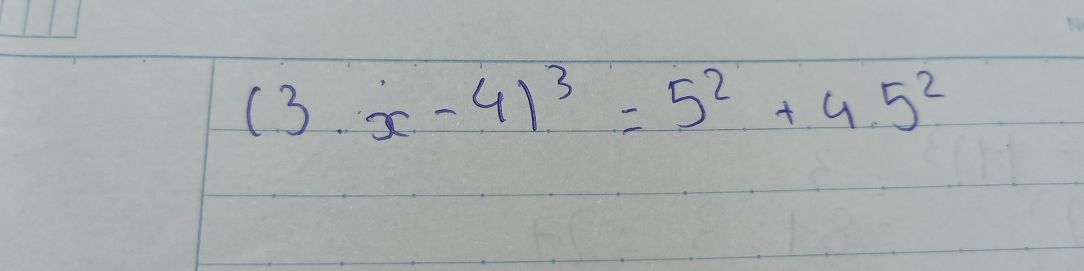 (3 . x - 4)³ = 5² + 4.5²